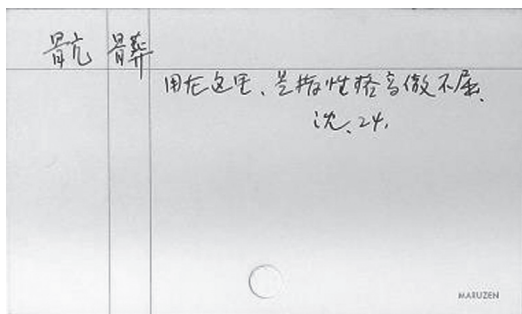 骯 髒
用在这里、是指性格高傲不屈、
沈、24.
MARUZEN